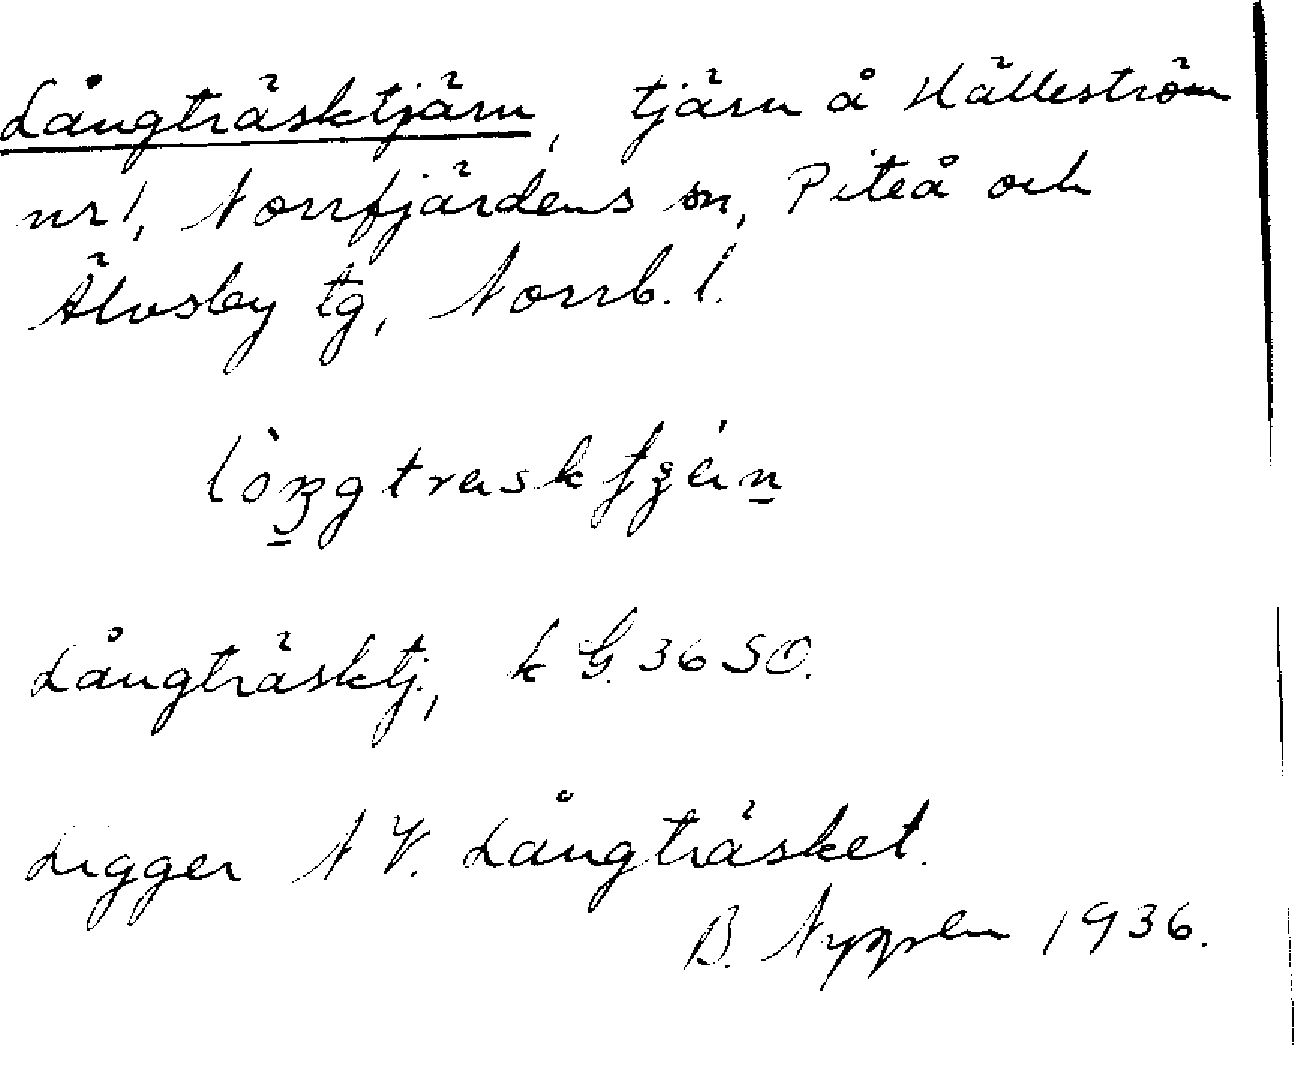 Långträsktjärn, tjärn å Hälleström
nr 1, Norrfjärdens sn, Piteå och
Älvsby tg, Norrb. l.
Långträsktj., k G. 36 SO.
Ligger N V. Långträsket.
B. Nygren 1936.